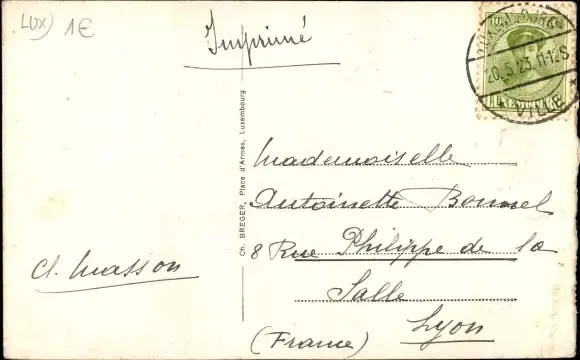 LUX) 1€
Imprimé
10
LUXEMBOURG
20.5.23.11-12S
VILLE
LUXEMBOURG
Ch. BREGER, Place d'Armes, Luxembourg
Mademoiselle
Antoinette Bonnel
8 Rue Philippe de la
Salle
Lyon
(France)
Cl. Masson